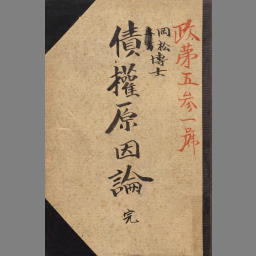 政第五参一号
岡松博士
債權原因論 完